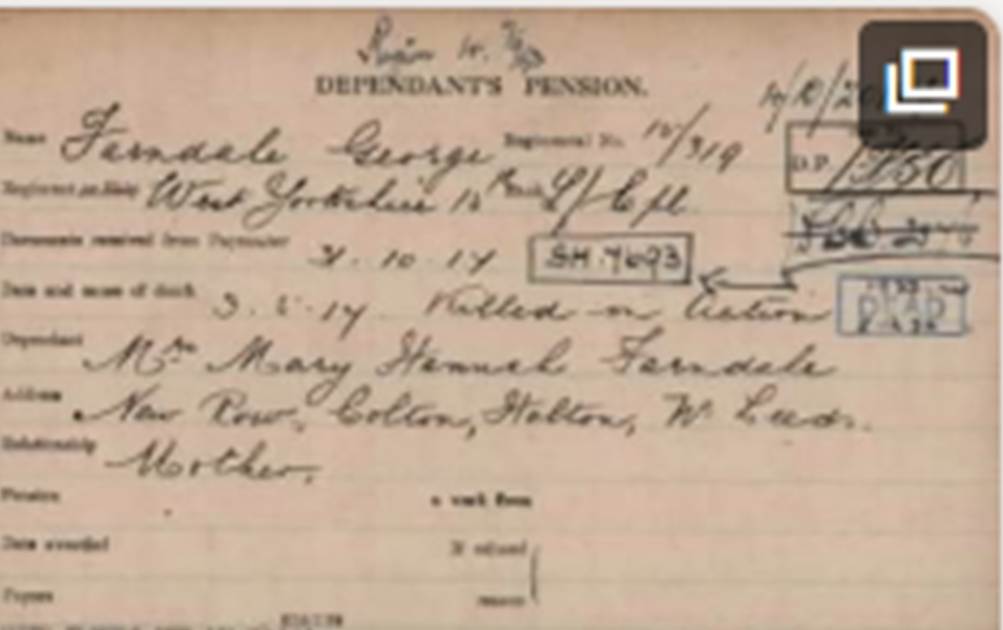 DEPENDANT'S PENSION.
Name Farndale George Regimental No. 15/319
D.P. /7150
Regiment or Ship West Yorkshire 15th Rank L/Cpl
Documents received from Paymaster 31.10.17 SH.7693
Date and cause of death 3.5.17 Killed in Action DEAD
Dependant Mrs Mary Hannah Farndale
Address New Row, Colton, Halton, Nr Leeds.
Relationship Mother.
Pension a week from
Date awarded If refused
Payers reason